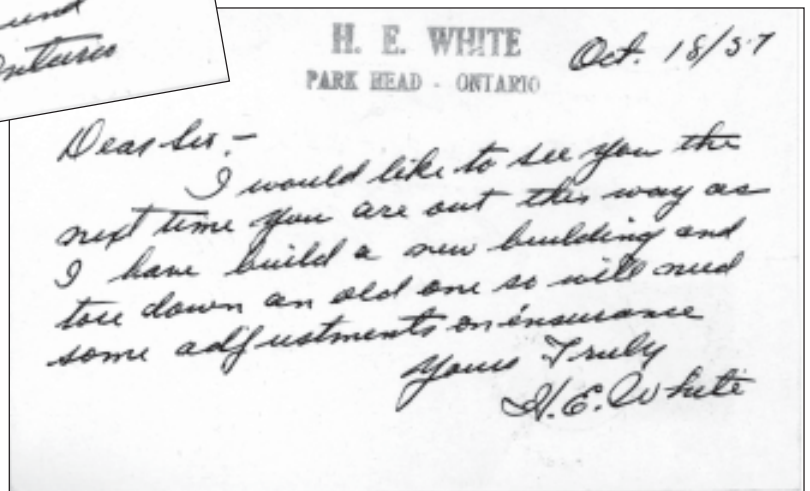 und
Ontario
H. E. WHITE
PARK HEAD - ONTARIO
Oct. 18/57
Dear Sir.-
I would like to see you the
next time you are out this way as
I have build a new building and
tore down an old one so will need
some adjustments on insurance
Yours Truly
H. E. White